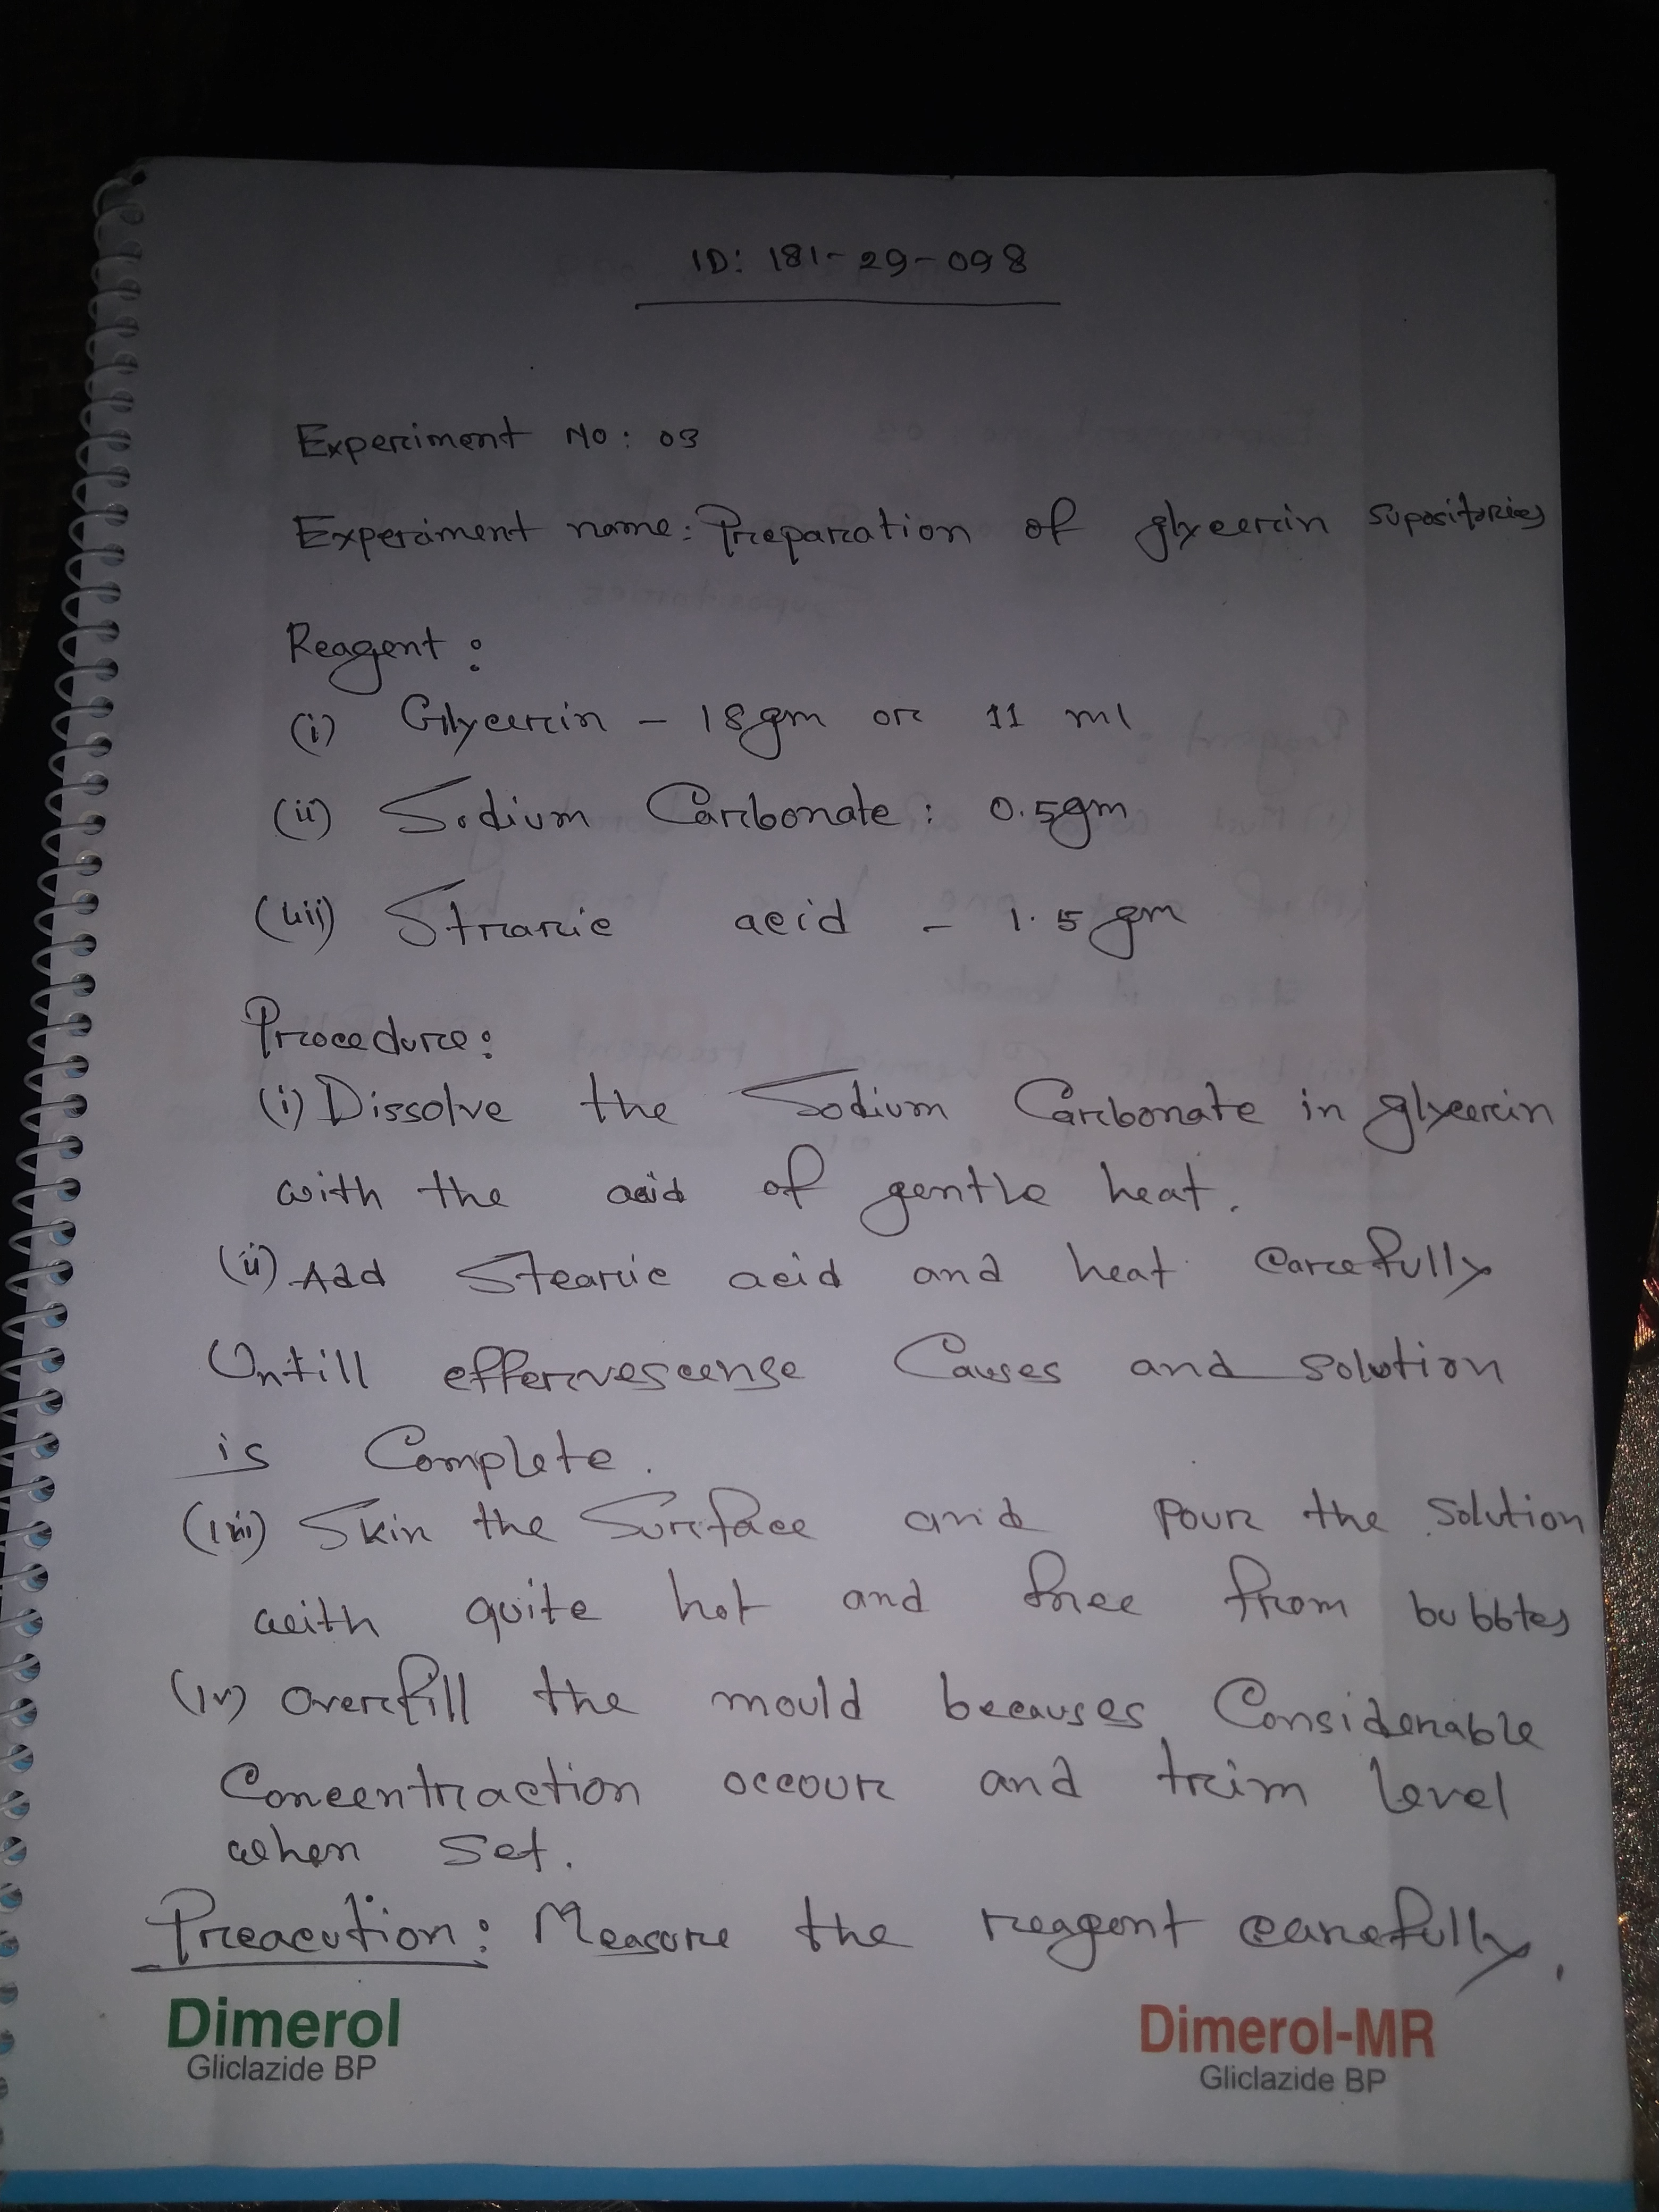 ID: 181-29-098
Experiment No: 03
Experiment name: Preparation of glycerin supositories
Reagent:
(i) Glycerin - 18gm or 11 ml
(ii) Sodium Carbonate: 0.5gm
(iii) Straric acid - 1.5 gm
Procedure:
(i) Dissolve the Sodium Carbonate in glycerin
with the acid of gentle heat.
(ii) Add Stearic acid and heat carefully
Untill effervescense Causes and solution
is Complete.
(iii) Skin the Surface and pour the solution
with quite hot and free from bubbles
(iv) overfill the mould becauses Considerable
Concentraction occour and trim level
when set.
Preacution: Measure the reagent carefully.
Dimerol
Gliclazide BP
Dimerol-MR
Gliclazide BP